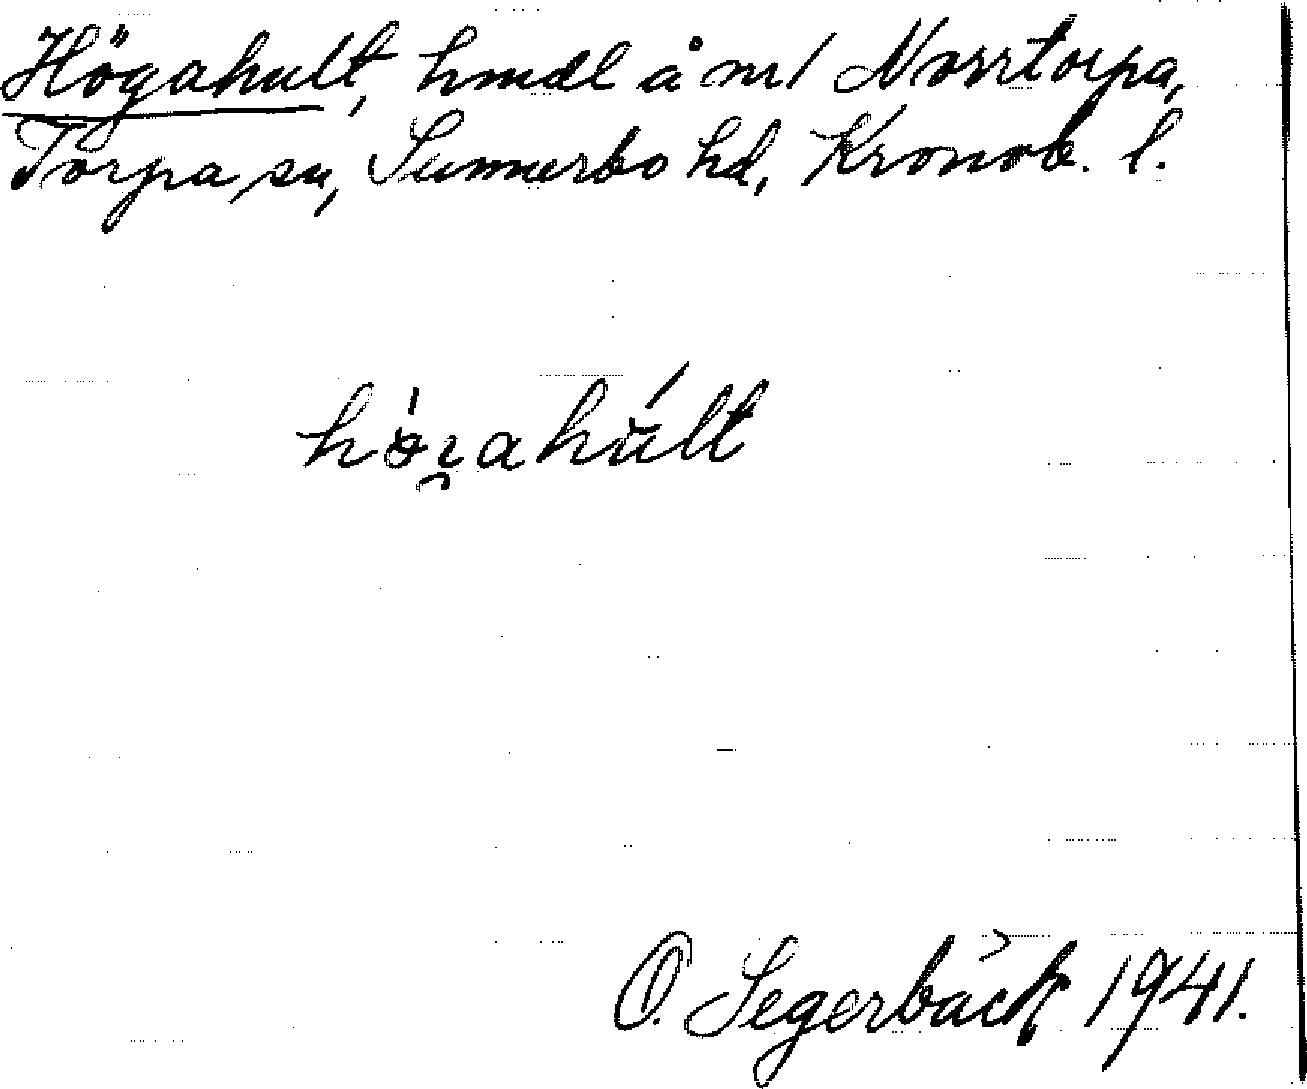 Högahult, hmdl å nr 1 Norrtorpa,
Torpa sn, Sunnerbo hd, Kronob. l.
O. Segerbäck 1941.